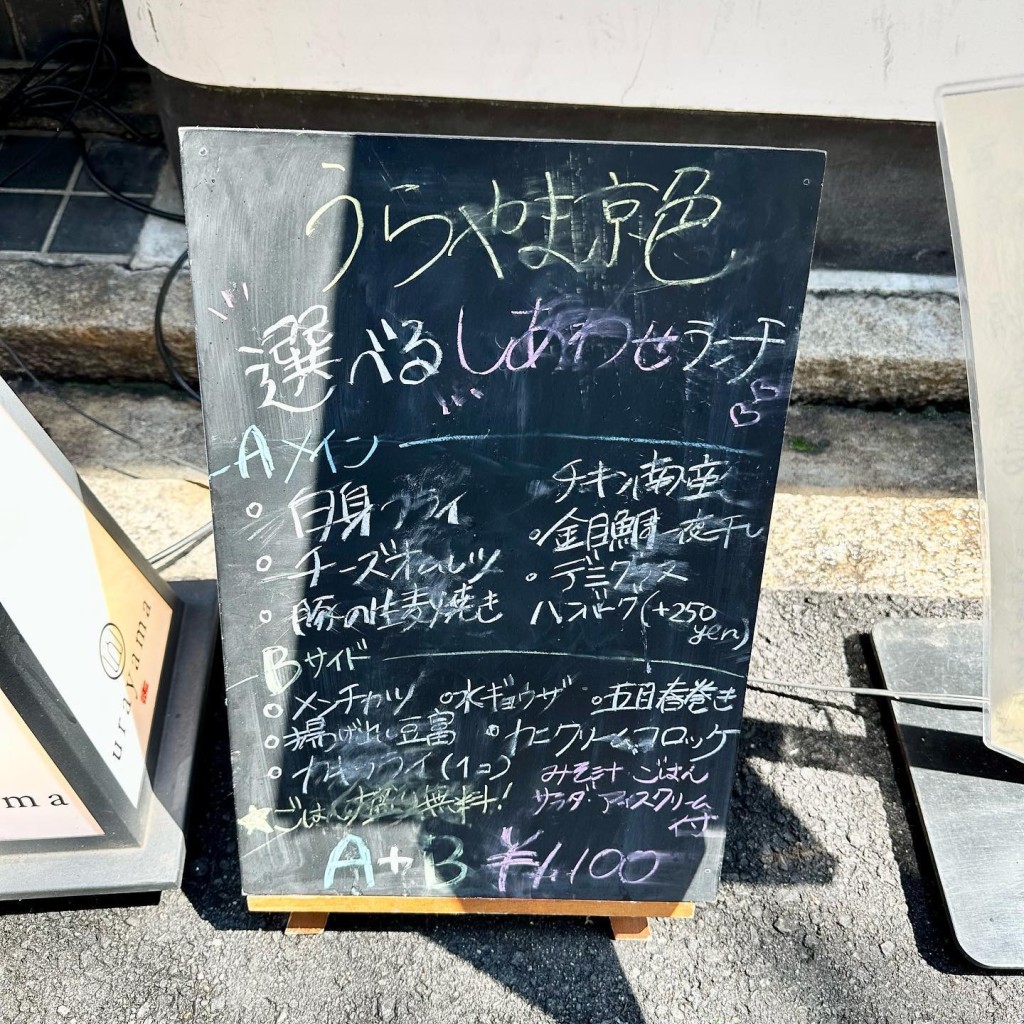 うらやま京色
選べるしあわせランチ
Aメイン
。白身フライ
。チーズオムレツ
。豚の生姜焼き
チキン南蛮
。金目鯛一夜干し
。デミグラス
ハンバーグ(+250
yen)
Bサイド
。メンチカツ 。水ギョウザ 。五目春巻き
。揚げだし豆冨 。カニクリームコロッケ
。カキフライ(1コ)
みそ汁 ごはん
サラダ・アイスクリーム
付
★ごはん大盛り無料!
A+B ¥1,100
urayama
ama